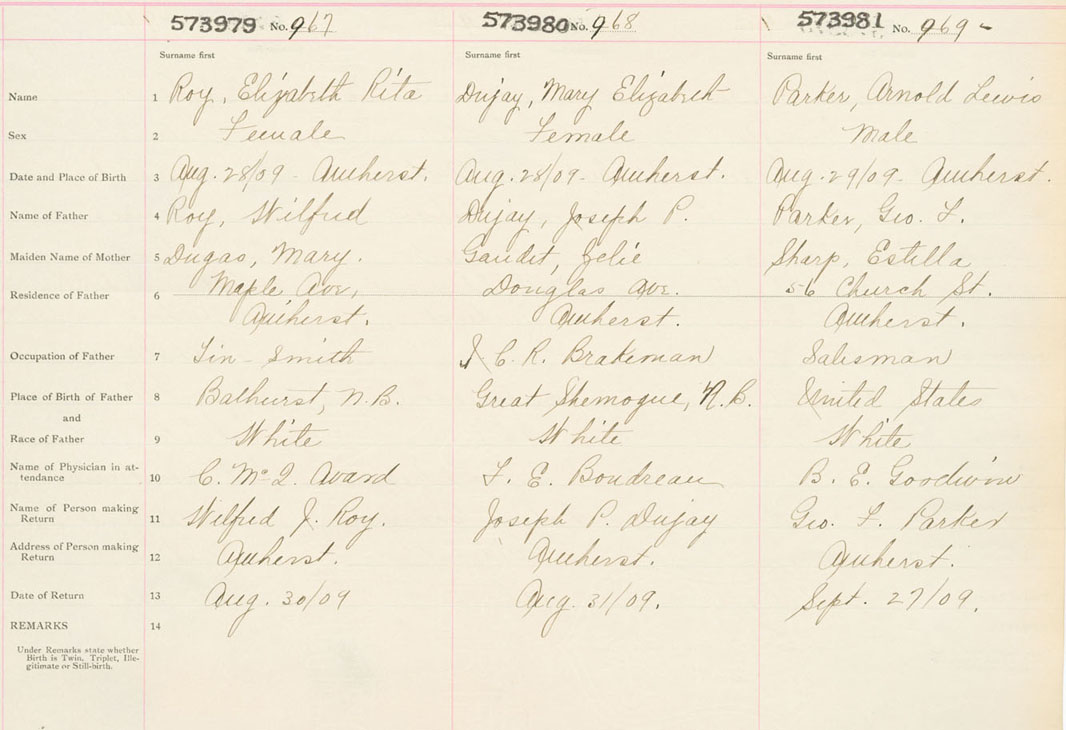 573979 No. 967 573980 No. 968 573981 No. 969 -
Surname first Surname first Surname first
Name 1 Roy, Elizabeth Rita Dujay, Mary Elizabeth Parker, Arnold Lewis
Sex 2 Female Female Male
Date and Place of Birth 3 Aug. 28/09 - Amherst. Aug. 28/09 - Amherst. Aug. 29/09 - Amherst.
Name of Father 4 Roy, Wilfred Dujay, Joseph P. Parker, Geo. F.
Maiden Name of Mother 5 Dugas, Mary. Gaudet, Zelie Sharp, Estella
Residence of Father 6 Maple Ave, Douglas Ave. 56 Church St.
Amherst. Amherst. Amherst.
Occupation of Father 7 Tin-Smith I. C. R. Brakeman Salesman
Place of Birth of Father 8 Bathurst, N.B. Great Shemogue, N.B. United States
and
Race of Father 9 White White White
Name of Physician in at-
tendance 10 C. McQ. Avard F. E. Boudreau B. E. Goodwin
Name of Person making
Return 11 Wilfred J. Roy. Joseph P. Dujay Geo. F. Parker
Address of Person making
Return 12 Amherst. Amherst. Amherst.
Date of Return 13 Aug. 30/09 Aug. 31/09. Sept. 27/09.
REMARKS 14
Under Remarks state whether
Birth is Twin. Triplet, Ille-
gitimate or Still-birth.